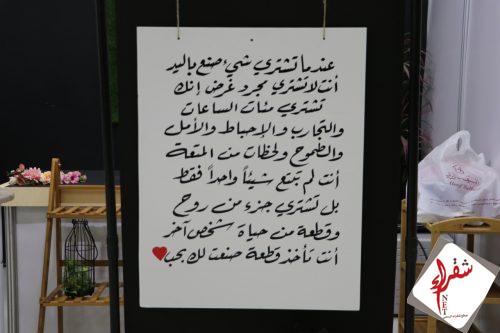 عندما تشتري شيء صنع باليد
أنت لا تشتري مجرد غرض إنك
تشتري مئات الساعات
والتجارب والإحباط والأمل
والطموح ولحظات من المتعة
أنت لم تبتع شيئاً واحداً فقط
بل تشتري جزء من روح
وقطعة من حياة شخص آخر
أنت تأخذ قطعة صنعت لك بحب
شقراء
NET